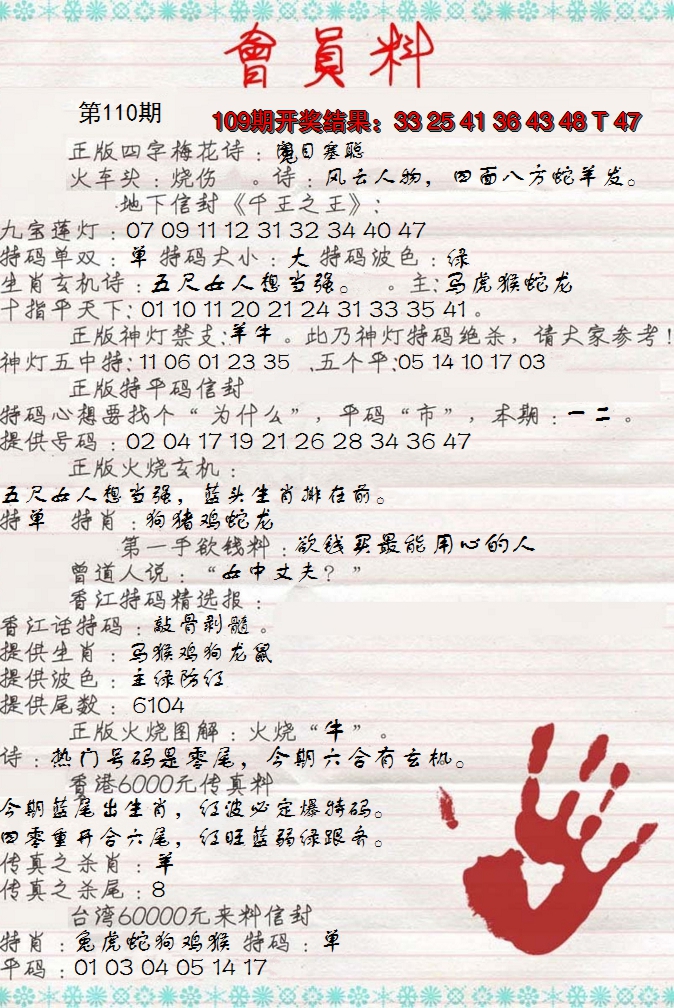 會員料
第110期
109期开奖结果：33 25 41 36 43 48 T 47
正版四字梅花诗：闭目塞聪
火车头：烧伤 。诗：风云人物，四面八方蛇羊发。
地下信封《千王之王》：
九宝莲灯：07 09 11 12 31 32 34 40 47
特码单双：单 特码大小：大 特码波色：绿
生肖玄机诗：五尺女人想当强。 。主：马虎猴蛇龙
十指平天下：01 10 11 20 21 24 31 33 35 41。
正版神灯禁支：羊牛。此乃神灯特码绝杀，请大家参考！
神灯五中特：11 06 01 23 35 .五个平：05 14 10 17 03
正版特平码信封
特码心想要找个“为什么”，平码“市”，本期：一二。
提供号码：02 04 17 19 21 26 28 34 36 47
正版火烧玄机：
五尺女人想当强，蓝头生肖排在前。
特单 特肖：狗猪鸡蛇龙
第一手欲钱料：欲钱买最能用心的人
曾道人说：“女中丈夫？”
香江特码精选报：
香江话特码：敲骨剥髓。
提供生肖：马猴鸡狗龙鼠
提供波色：主绿防红
提供尾数：6104
正版火烧图解：火烧“牛”。
诗：热门号码是零尾，今期六合有玄机。
香港6000元传真料
今期蓝尾出生肖，红波必定爆特码。
四零重开合六尾，红旺蓝弱绿跟务。
传真之杀肖：羊
传真之杀尾：8
台湾60000元来料信封
特肖：兔虎蛇狗鸡猴 特码：单
平码：01 03 04 05 14 17